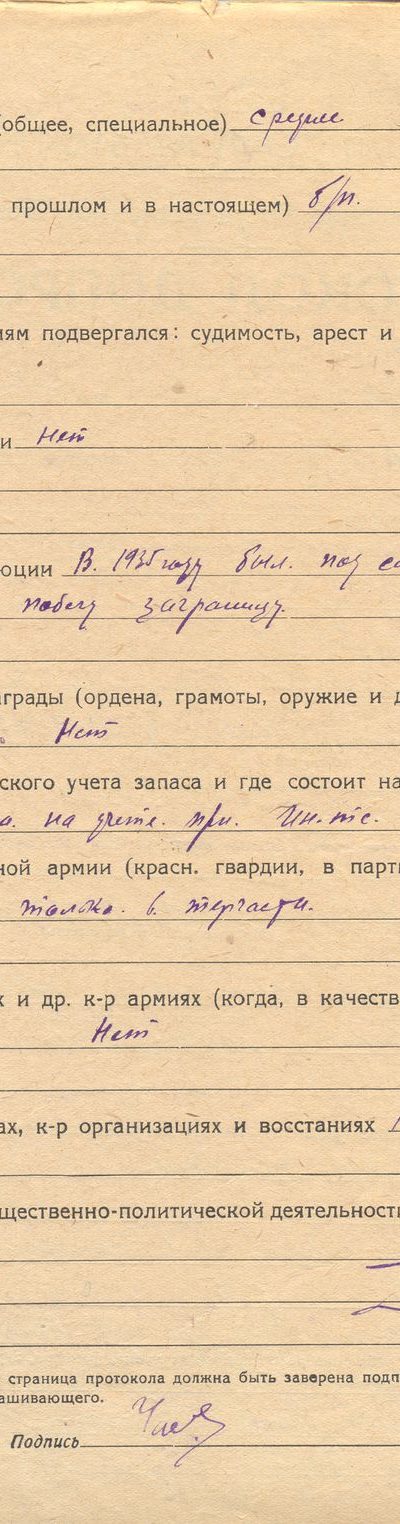 (общее, специальное) среднее
прошлом и в настоящем) б/п.
иям подвергался: судимость, арест и
и Нет
юции В. 1935 году был. под с
побегу заграницу.
аграды (ордена, грамоты, оружие и д
Нет
ского учета запаса и где состоит на
а. на учете. при. Ин-те.
ной армии (красн. гвардии, в парт
только. в. терчасти.
х и др. к-р армиях (когда, в качеств
Нет
ах, к-р организациях и восстаниях
щественно-политической деятельност
страница протокола должна быть заверена подп
ашивающего.
Подпись